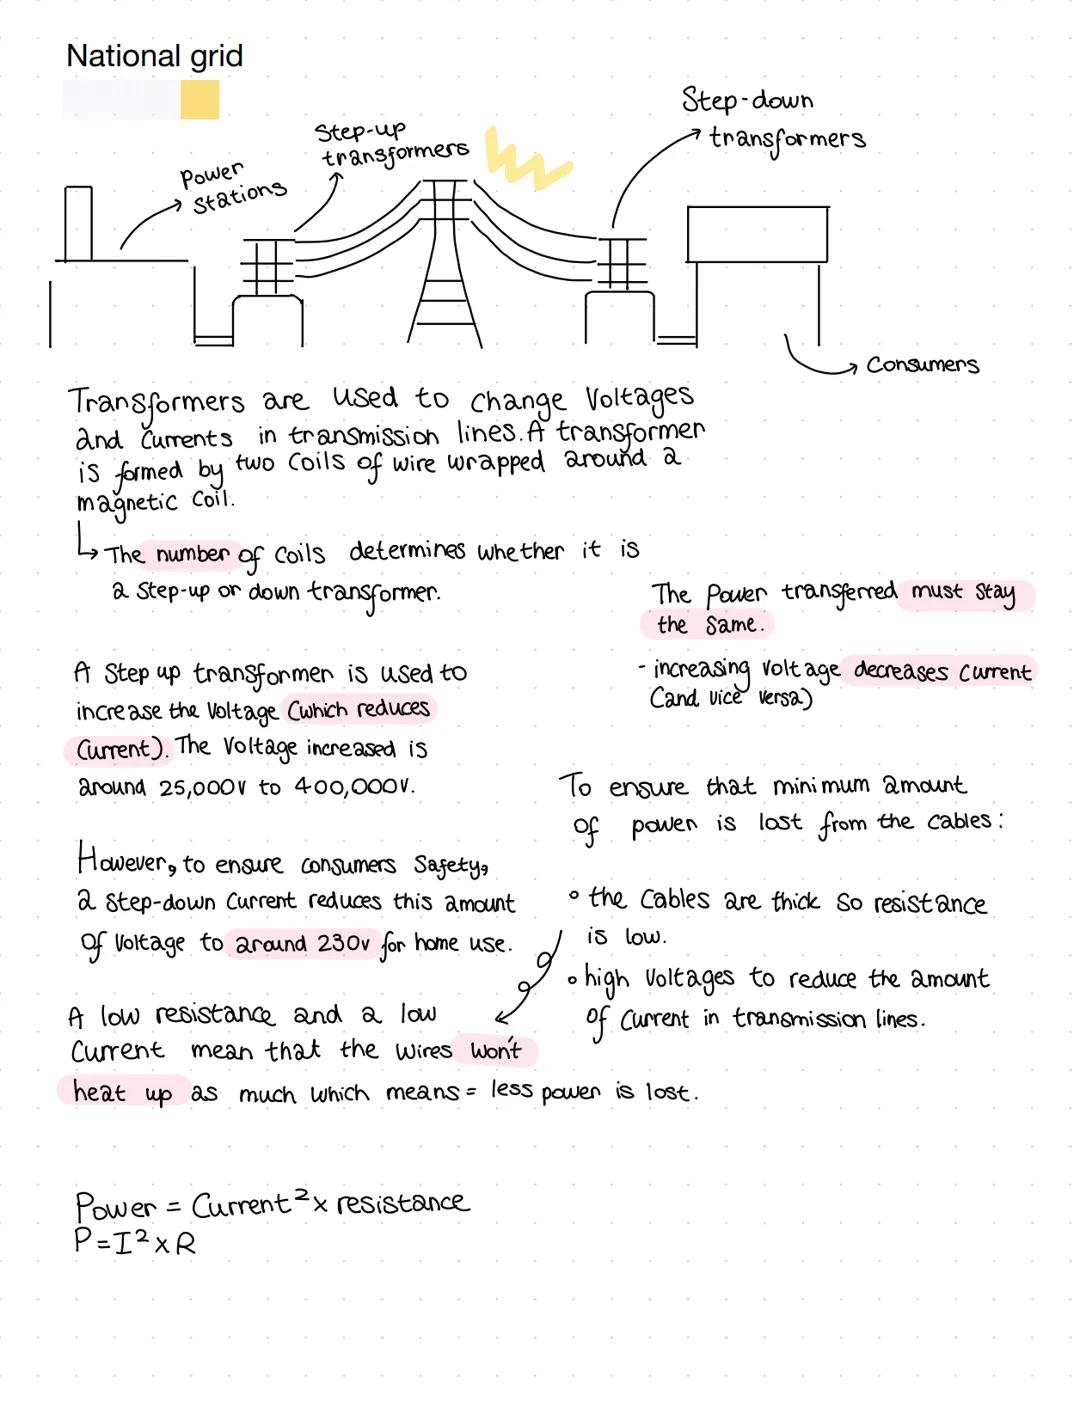 National grid
Step-down
transformers
Step-up
transformers
Power
stations
Consumers
Transformers are used to change voltages
and currents in transmission lines. A transformer
is formed by two coils of wire wrapped around a
magnetic coil.
The number of coils determines whether it is
a step-up or down transformer.
The power transferred must stay
the same.
- increasing voltage decreases current
(and vice versa)
A step up transformer is used to
increase the voltage (which reduces
current). The voltage increased is
around 25,000v to 400,000v.
To ensure that minimum amount
of power is lost from the cables:
However, to ensure consumers safety,
a step-down current reduces this amount
of voltage to around 230v for home use.
• the cables are thick so resistance
is low.
• high voltages to reduce the amount
of current in transmission lines.
A low resistance and a low
current mean that the wires won't
heat up as much which means = less power is lost.
Power = Current² x resistance
P=I² x R